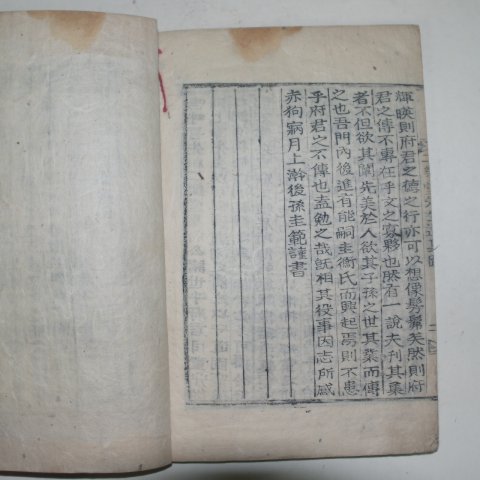 輝暎則府君之德之行亦可以想像髣髴矣然則府
君之傳不專在乎文之寡夥也然有一說夫刊其集
者不但欲其闡先美於人欲其子孫之世其業而傳
之也吾門內後進有能嗣圭衞氏而興起焉則不患
乎府君之不傳也盍勉之哉旣相其役事因志所感
赤狗病月上澣後孫圭範謹書